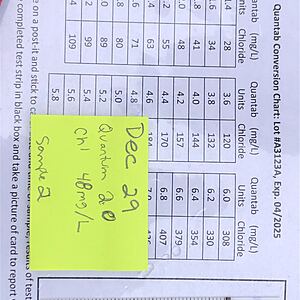 Quantab Conversion Chart: Lot #A3123A, Exp. 04/2025
Quantab Units Chloride (mg/L) Quantab Units Chloride (mg/L) Quantab Units Chloride (mg/L)
1.4 28 3.6 120 6.0 308
1.6 34 3.8 132 6.2 330
1.8 41 4.0 144 6.4 354
2.0 48 4.2 157 6.6 379
55 4.4 170 6.8 407
63 4.6 184 7.0
71 4.8
80 5.0
89 5.2
99 5.4
109 5.6
5.8
on a post-it and stick to
results of test
completed test strip in black box and take a picture of card to report
Dec 29
Quantum 2.0
Chl 48 mg/L
Sample 2